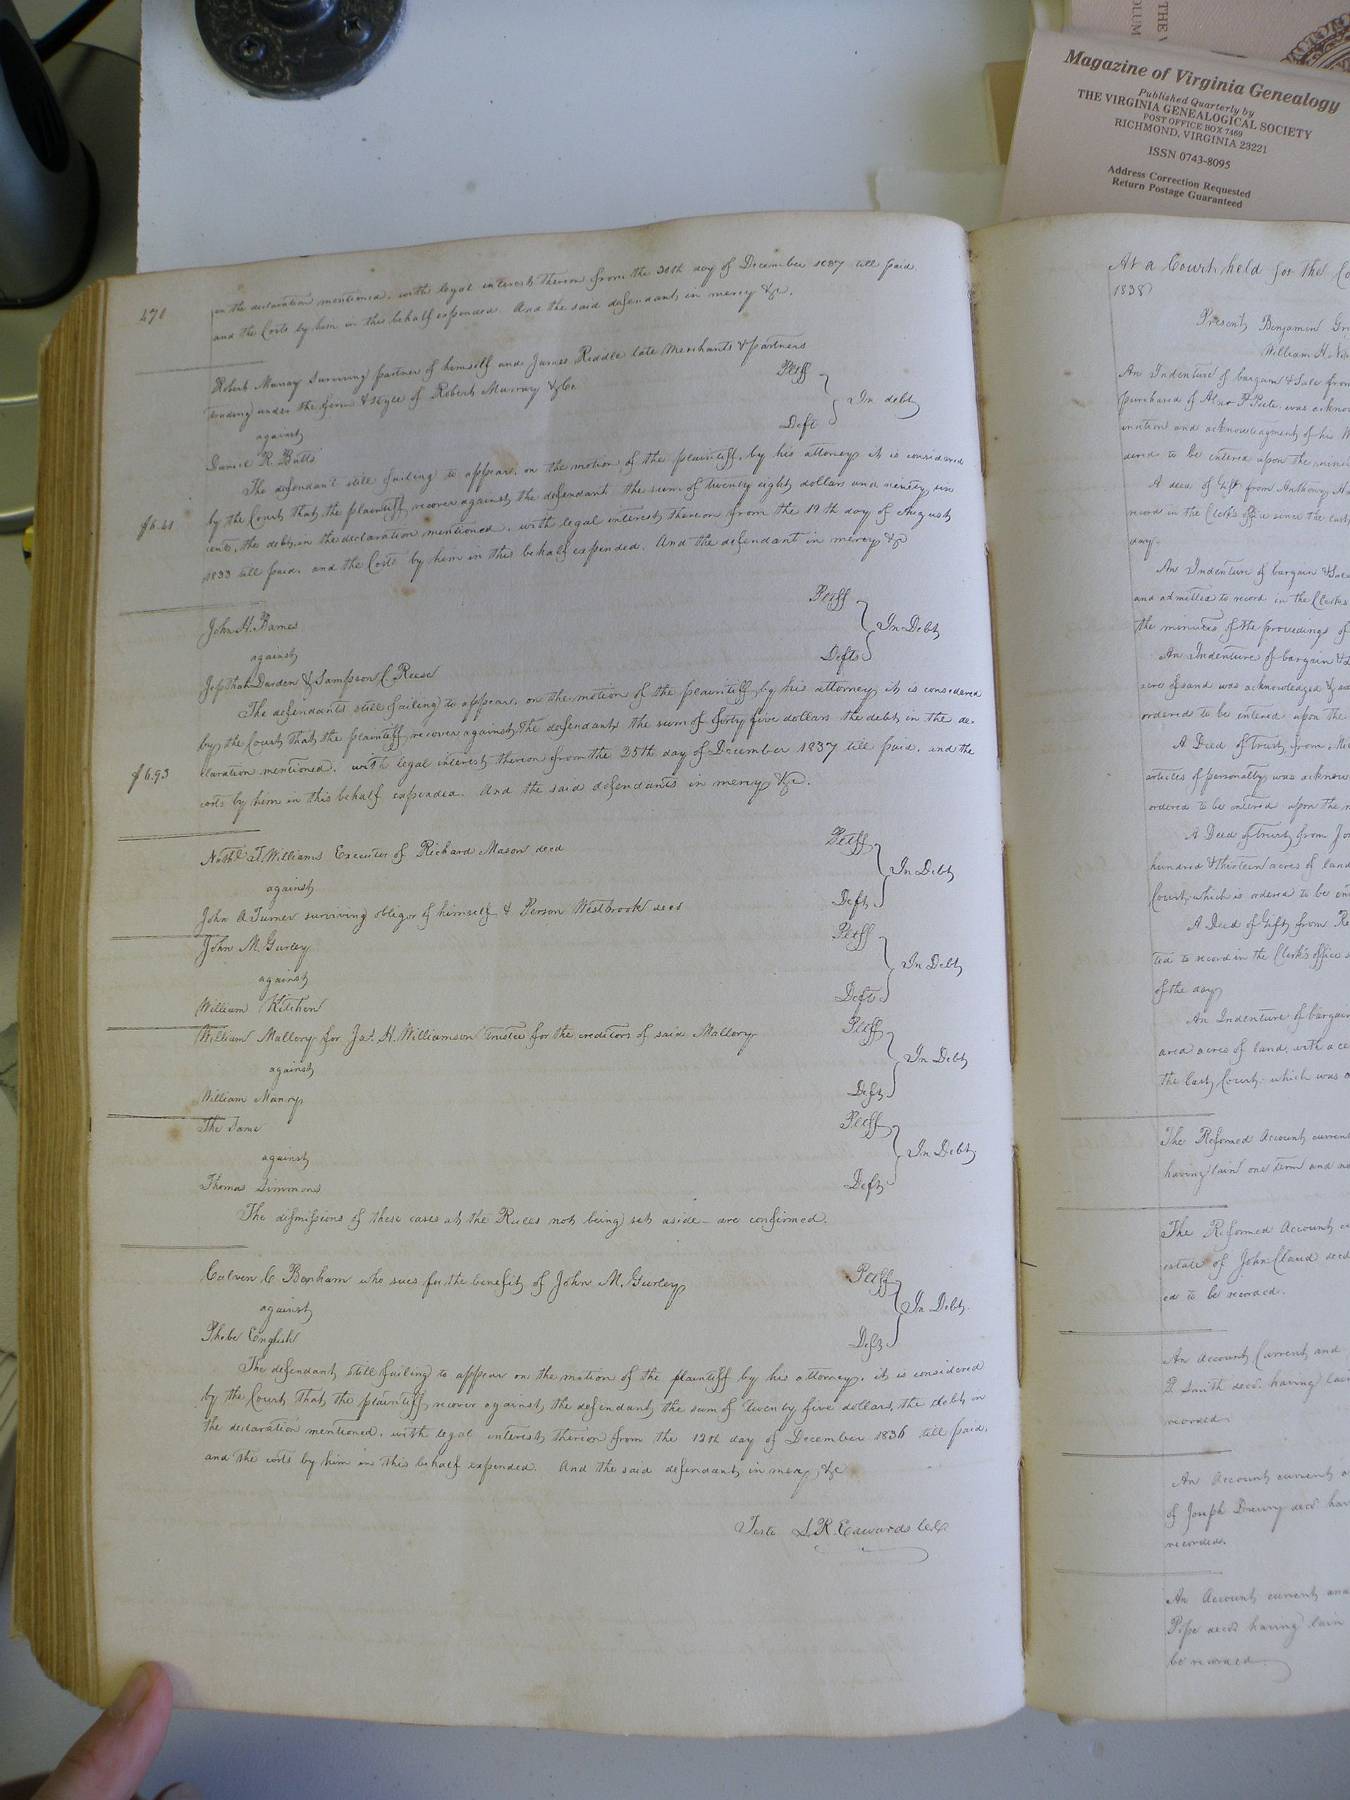 Magazine of Virginia Genealogy
Published Quarterly by
THE VIRGINIA GENEALOGICAL SOCIETY
POST OFFICE BOX 7469
RICHMOND, VIRGINIA 23221
ISSN 0743-8095
Address Correction Requested
Return Postage Guaranteed
in the declaration mentioned, with legal interest thereon from the 30th day of December 1837 till paid
and the Costs by him in this behalf expended. And the said defendant in mercy &c.
Robert Murray surviving partner of himself and James Riddle late Merchants & partners
trading under the firm & style of Robert Murray & Co. Pltff
against In debt
Daniel R. Batts Deft
The defendant still failing to appear, on the motion of the plaintiff, by his attorney it is considered
by the Court that the plaintiff recover against the defendant the sum of twenty eight dollars and ninety six
cents, the debt in the declaration mentioned, with legal interest thereon from the 19th day of August
1833 till paid, and the Costs by him in this behalf expended. And the defendant in mercy &c
John H. Barnes Pltff
against In Debt
Jepthah Darden & Sampson C Reese Defts
The defendants still failing to appear, on the motion of the plaintiff by his attorney it is considered
by the Court that the plaintiff recover against the defendants the sum of forty five dollars the debt in the de-
$6.93
claration mentioned, with legal interest thereon from the 25th day of December 1837 till paid, and the
costs by him in this behalf expended. And the said defendants in mercy &c.
Nathl T. Williams Executor of Richard Mason decd Pltff
against In Debt
John A Turner surviving obligor of himself & Person Westbrook decd Deft
John M. Gurley Pltff
against In Debt
William Kitchen Deft
William Mallory for Jas. H. Williamson trustee for the creditors of said Mallory Pltff
against In Debt
William Manry Deft
The Same Pltff
against In Debt
Thomas Simmons Deft
The dismissions of these cases at the Rules not being set aside - are confirmed.
Calvin C Bonham who sues for the benefit of John M. Gurley Pltff
against In Debt
Phebe English Deft
The defendant still failing to appear on the motion of the plaintiff by his attorney, it is considered
by the Court that the plaintiff recover against the defendant the sum of twenty five dollars, the debt in
the declaration mentioned, with legal interest thereon from the 12th day of December 1836 till paid,
and the costs by him in this behalf expended. And the said defendant in mercy &c
Teste L. R. Edwards C.C.
At a Court held for the Co
1838
Present, Benjamin
William H.
An Indenture of bargain & Sale from
purchased of
and acknowledgment of his
dered to be entered upon the
A deed of Gift from Anthony
record in the Clerk's office since the last
day.
An Indenture of bargain & Sale
and admitted to record in the Clerks
the minutes of the proceedings of
An Indenture of bargain &
acres of land was acknowledged &
ordered to be entered upon the
A Deed of trust from
articles of personalty was acknow
ordered to be entered upon the m
A Deed of trust from
hundred & thirteen acres of land
Court, which is ordered to be en
A Deed of Gift from
ted to record in the Clerk's office s
of the day
An Indenture of bargain
acres of land, with a ce
the last Court, which was o
The Reformed Account current
having lain one term and no
The Reformed Account cu
estate of John Claud decd
ed to be recorded.
An account Current and
P. Smith decd. having lain
recorded
An Account current a
of Joseph Drewry decd hav
recorded.
An Account current and
Pope decd having lain
be recorded